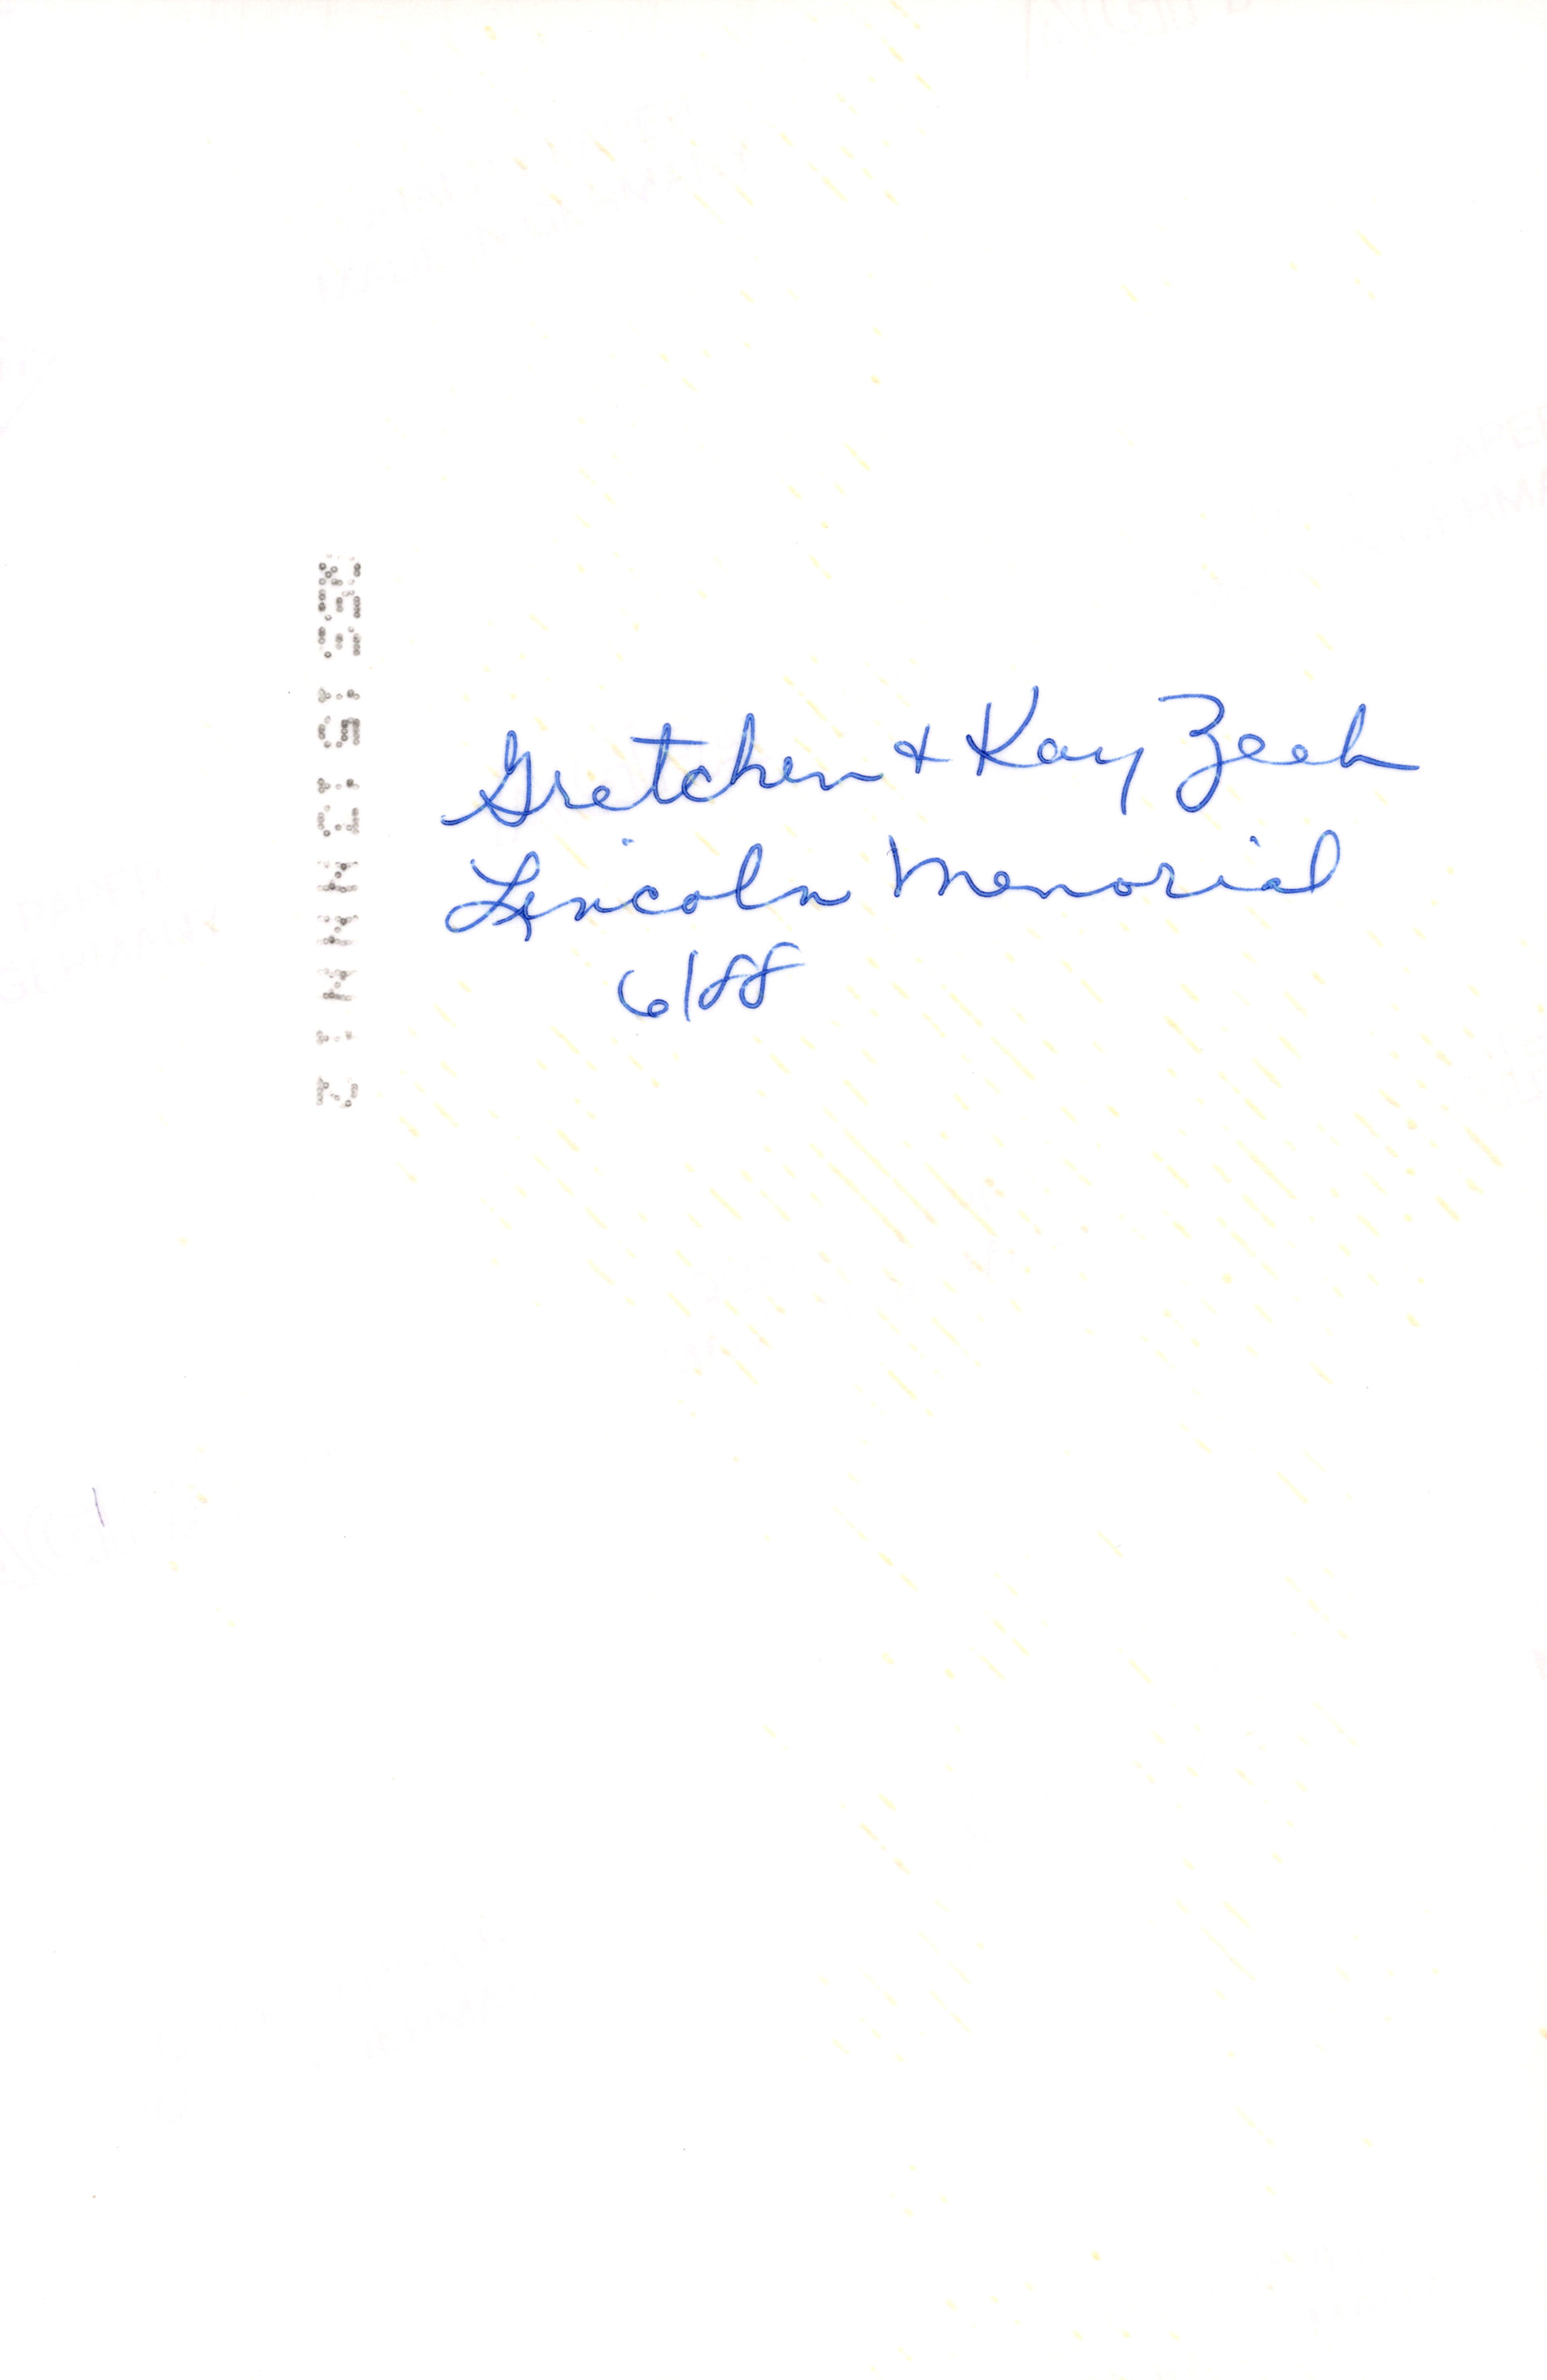 Gretchen + Kay Zeeh
Lincoln Memorial
6/88